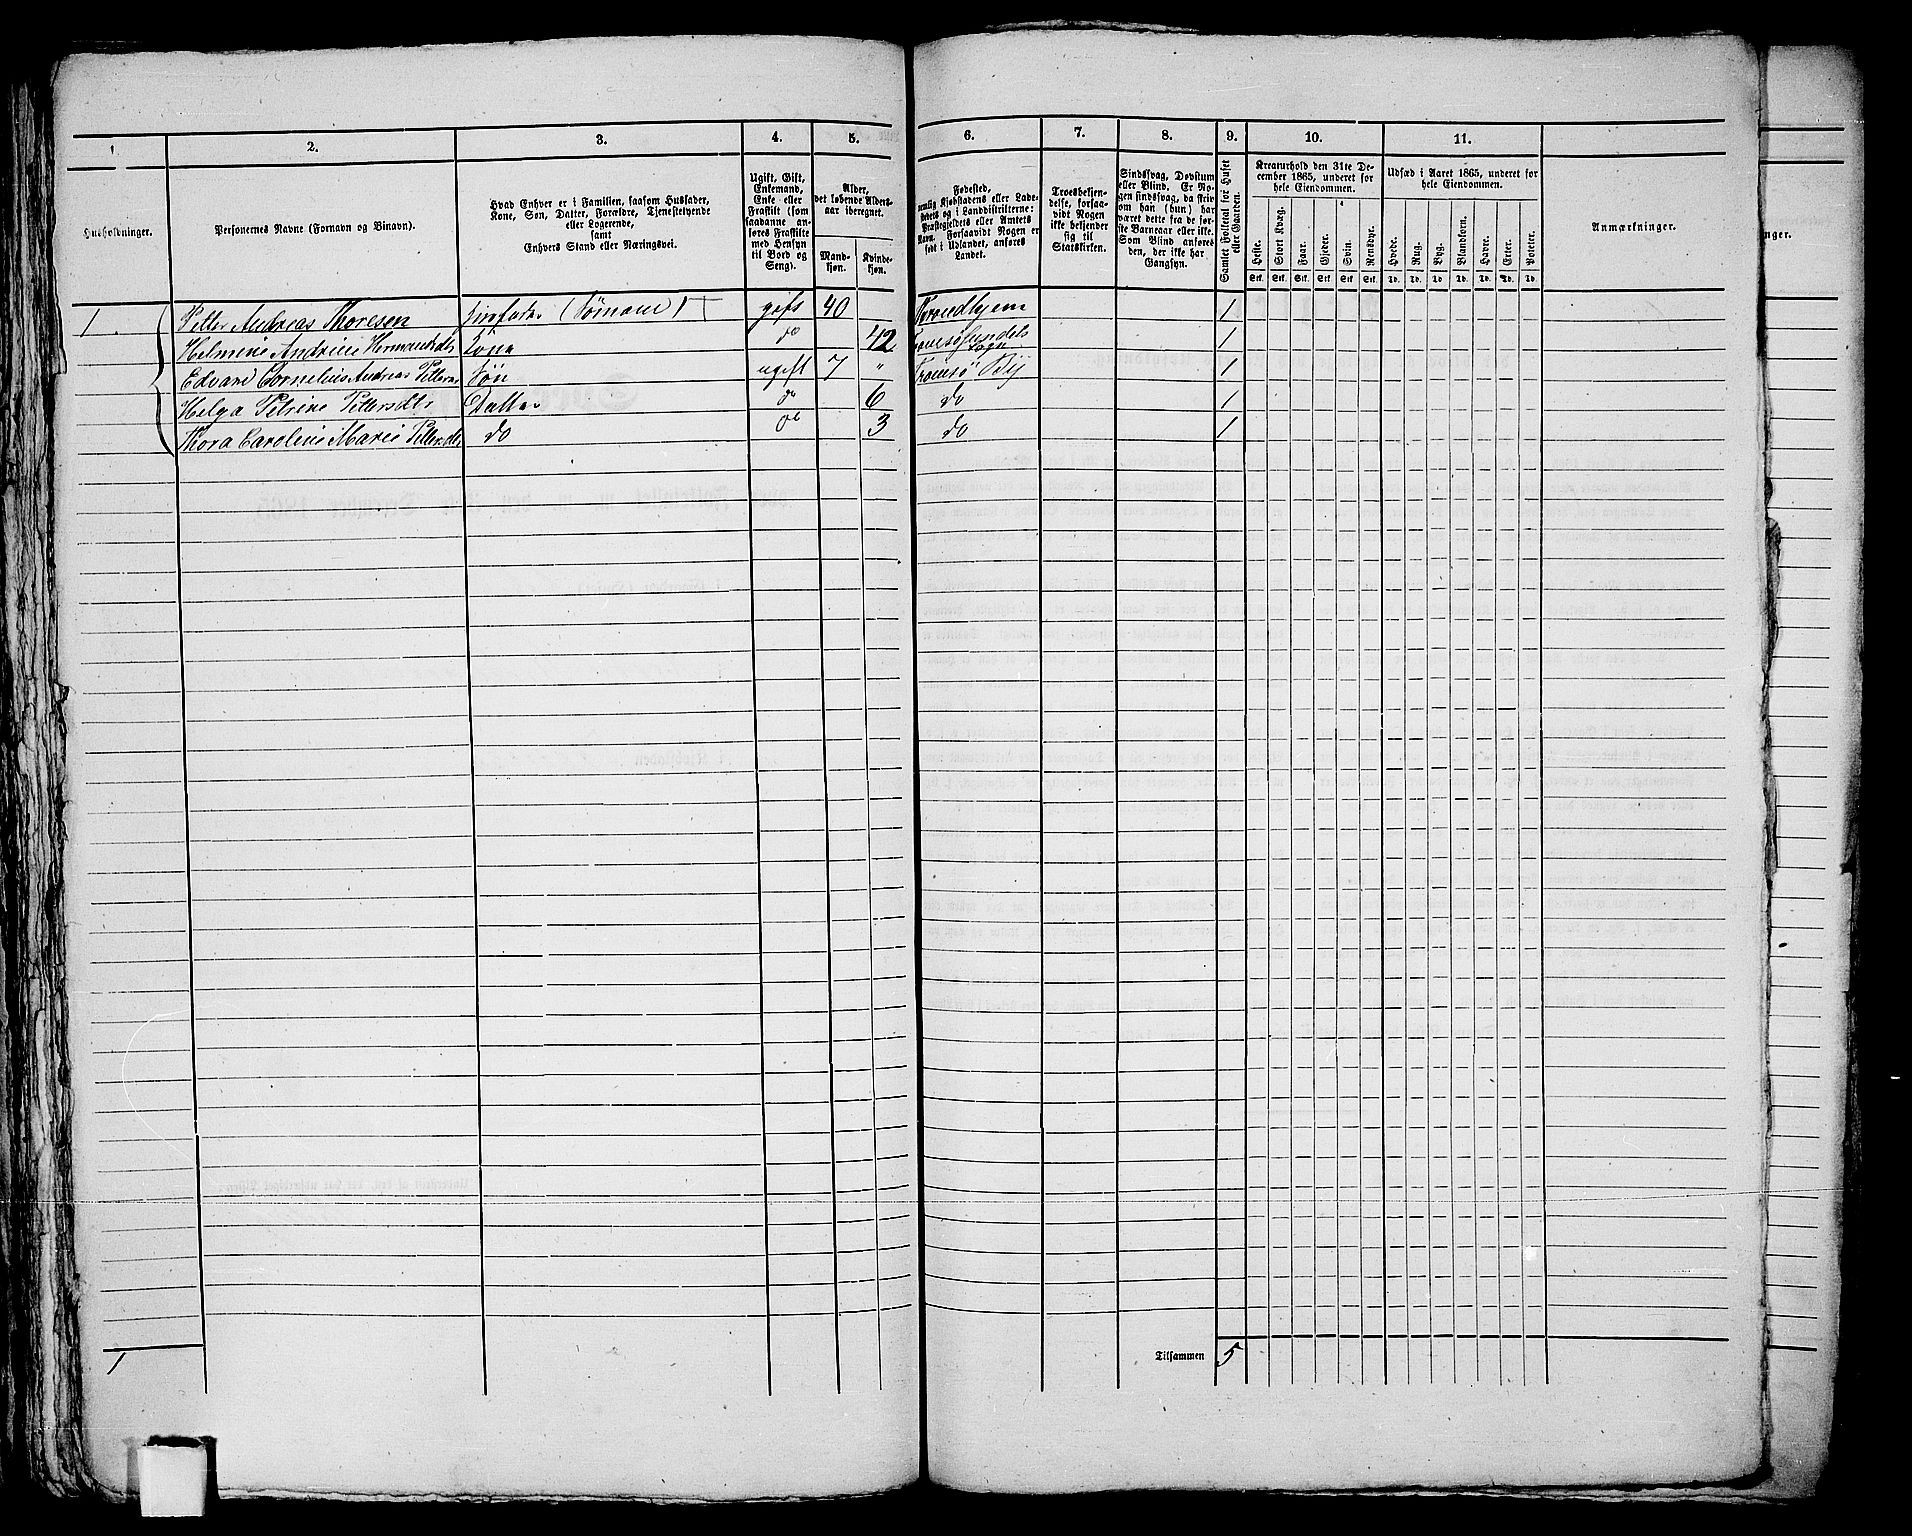 1
2.
3.
4.
5.
6.
7.
8.
9.
10.
11.
Husholdninger.
Personernes Navne (Fornavn og Binavn).
Hvad Enhver er i Familien, saasom Husfader,
Kone, Søn, Datter, Forældre, Tjenestetyende
eller Logerende,
samt
Enhvers Stand eller Næringsvei.
Ugift, Gift,
Enkemand,
Enke eller
Fraskilt (som
saadanne an-
føres Fraskilte
med Hensyn
til Bord og
Seng).
Alder,
det løbende Alders-
aar iberegnet.
Mand-
kjøn.
Kvinde-
kjøn.
Fødested,
nemlig Kjøbstadens eller Lade-
stedets og i Landdistrikterne:
Præstegjeldets eller Amtets
Navn. Forsaavidt Nogen er
født i Udlandet, anføres
Landet.
Troesbekjen-
delse, forsaa-
vidt Nogen
ikke bekjender
sig til
Statskirken.
Sindssvag, Døvstum
eller Blind. Er No-
gen sindssvag, da skriv
om han (hun) har
været dette fra de før-
ste Barneaar eller ikke.
Som Blind anføres
den, der ikke har
Gangsyn.
Samlet Folketal for Huset
eller Gaarden.
Kreaturhold den 31te De-
cember 1865, underet for
hele Eiendommen.
Heste.
Stort Kvæg.
Faar.
Gjeder.
Svin.
Rensdyr.
Stk. Stk. Stk. Stk. Stk. Stk.
Udsæd i Aaret 1865, underet for
hele Eiendommen.
Hvede.
Rug.
Byg.
Blandkorn.
Havre.
Erter.
Poteter.
Td. Td. Td. Td. Td. Td. Td.
Anmærkninger.
1 Petter Andreas Thoresen Husfader (Sømand) gift 40 Trondhjem 1
Helmine Andrine Hermansdtr Kone do 42 Tromsøsundets Sogn 1
Edvard Cornelius Andreas Petters Søn ugift 7 " Tromsø By 1
Helga Petrine Pettersdtr Datter do 6 do 1
Thora Caroline Marie Pettersdtr do do 3 do 1
1
Tilsammen 5